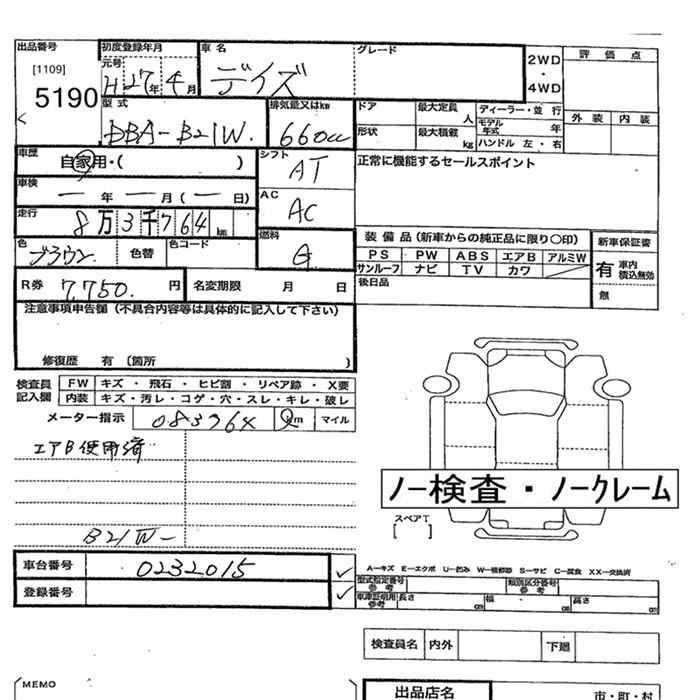 出品番号 初度登録年月 車名 グレード 2WD・4WD 評価点
[1109] 元号
5190 H27年4月 デイズ
型式 排気量又はkw ドア 最大定員 人 ディーラー・並行 外装 内装
DBA-B21W. 660cc 形状 最大積載 kg モデル年式 年 ハンドル 左・右
車歴 自家用・( ) シフト AT 正常に機能するセールスポイント
車検 ー年ー月(ー日) AC AC
走行 8万3千764km
色 ブラウン 色替 色コード 燃料 G 装備品(新車からの純正品に限り○印) 新車保証書
PS PW ABS エアB アルミW 有 車内積込無効
サンルーフ ナビ TV カワ
R券 7,750.円 名変期限 月 日 後日品 無
注意事項申告欄(不具合内容等は具体的に記入して下さい)
修復歴 有 〔箇所 〕
検査員記入欄 FW キズ・飛石・ヒビ割・リペア跡・X要
内装 キズ・汚レ・コゲ・穴・スレ・キレ・破レ
メーター指示 083764 km マイル
エアB使用済
ノー検査・ノークレーム
スペアT
[ ]
B21W-
車台番号 0232015 ✓
A−キズ E−エクボ U−凹み W−補修跡 S−サビ C−腐食 XX−交換済
型式指定番号 参考 類別区分番号 参考
登録番号 ✓ 車庫証明用 参考 長さ cm 幅 cm 高さ cm
検査員名 内外 下廻
MEMO 出品店名 市・町・村